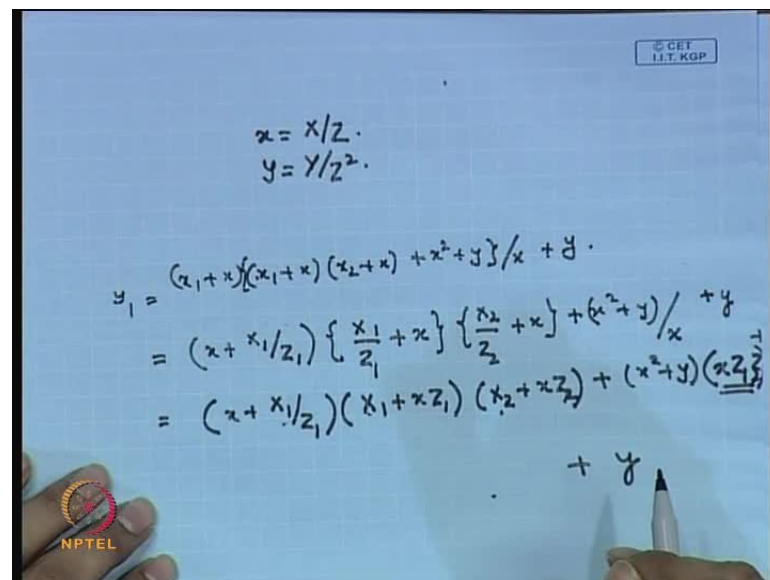 © CET
I.I.T. KGP
x = X/Z.
y = Y/Z².
y₁ = (x₁+x){(x₁+x)(x₂+x) + x²+y}/x + y.
= (x + X₁/Z₁) { X₁/Z₁ + x } { X₂/Z₂ + x } + (x²+y)/x + y
= (x + X₁/Z₁)(X₁ + xZ₁)(X₂ + xZ₂) + (x²+y)(xZ₁Z₂)⁻¹
+ y
NPTEL